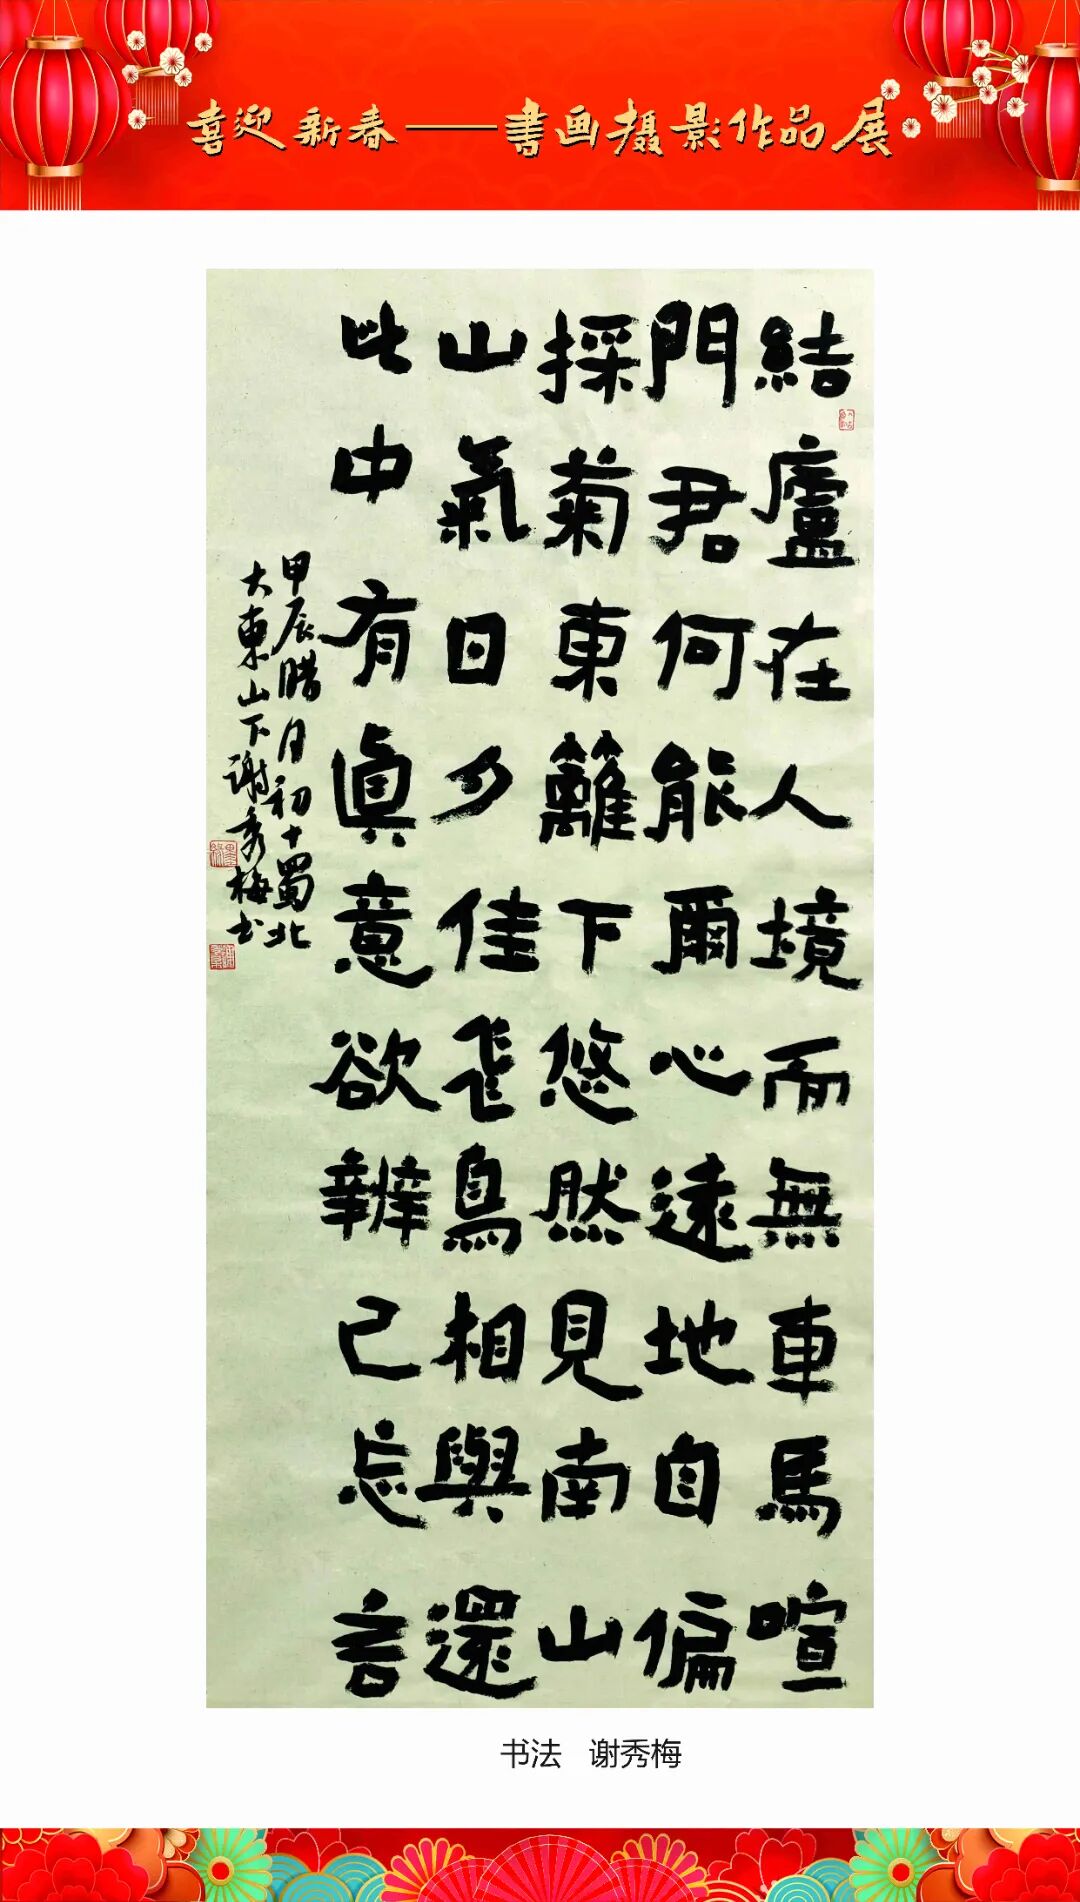 喜迎新春——書画摄影作品展
結廬在人境而無車馬喧
門君何能爾心遠地自偏
採菊東籬下悠然見南山
山氣日夕佳飛鳥相與還
此中有眞意欲辨已忘言
甲辰腊月初十蜀北
大東山下谢秀梅书
书法 谢秀梅